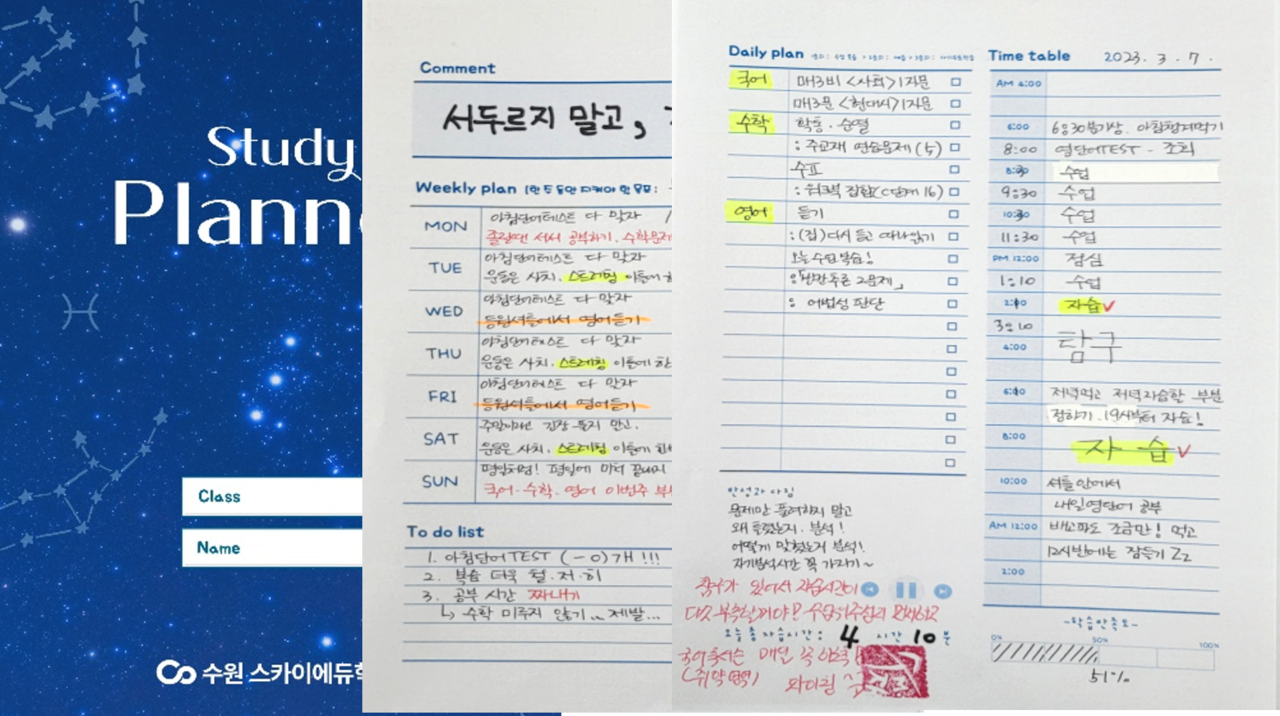 Study
Planne
Class
Name
수원 스카이에듀학
Comment
서두르지 말고,
Weekly plan
MON
아침단어테스트 다 맞자
졸릴땐 서서 공부하기. 수학문제
TUE
아침단어테스트 다 맞자
운동은 사치. 스트레칭 이틀에 한
WED
아침단어테스트 다 맞자
등원셔틀에서 영어듣기
THU
아침단어테스트 다 맞자
운동은 사치. 스트레칭 이틀에 한
FRI
아침단어테스트 다 맞자
등원셔틀에서 영어듣기
SAT
주말이라고 긴장 풀지 말고.
운동은 사치. 스트레칭 이틀에 한
SUN
평일처럼! 평일에 마저 끝내지
국어·수학·영어 이번주
To do list
1. 아침단어TEST (-0)개 !!!
2. 복습 더욱 철·저·히
3. 공부 시간 짜내기
↳ 수학 미루지 않기... 제발...
Daily plan
국어 매3비 <사회>1지문
매3문 <현대시>1지문
수학 확통·순열
: 주교재 연습문제 (5)
수표
: 워크북 집합(C단계 16)
영어 듣기
: (집)다시 듣고 따라읽기
오늘 수업 복습!
: 어법성 판단
Time table 2023. 3. 7.
AM 4:00
6:00 6:30분기상. 아침챙겨먹기
8:00 영단어TEST - 조회
8:30 수업
9:30 수업
10:30 수업
11:30 수업
PM 12:00 점심
1:10 수업
2:10 자습✓
3:10
4:00 탐구
6:10 저녁먹고 저녁자습할 부분
정하기. 19시부터 자습!
8:00 자습✓
10:00 셔틀 안에서
내일 영단어 공부
AM 12:00 배고파도 조금만! 먹고
12시반에는 잠들기 Zz
2:00
반성과 다짐
문제만 풀려하지 말고
왜 틀렸는지. 분석!
어떻게 맞췄는지 분석!
자기분석시간 꼭 가지기~
탐구가 있어서 자습시간이
오늘 총 자습시간: 4 시간 10 분
매일 꼭
(취약영역) 화이팅
~학습만족도~
0% 50% 100%
51%